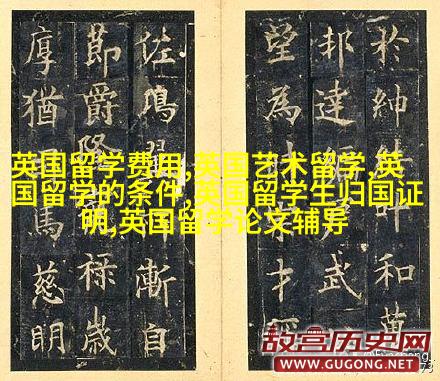 於紳叶和萬
邦達武
望為才
佐鴻漸自
節爵祿歲
厚猶馬慈明
英国留学费用,英国艺术留学,英
国留学的条件,英国留学生归国证
明,英国留学论文辅导
故宫历史网
WWW.GUGONG.NET